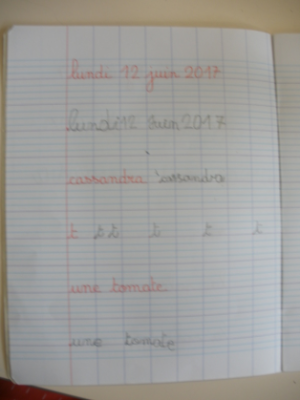 lundi 12 juin 2017
lundi 12 juin 2017
cassandra cassandra
t t t t t t
une tomate
une tomate